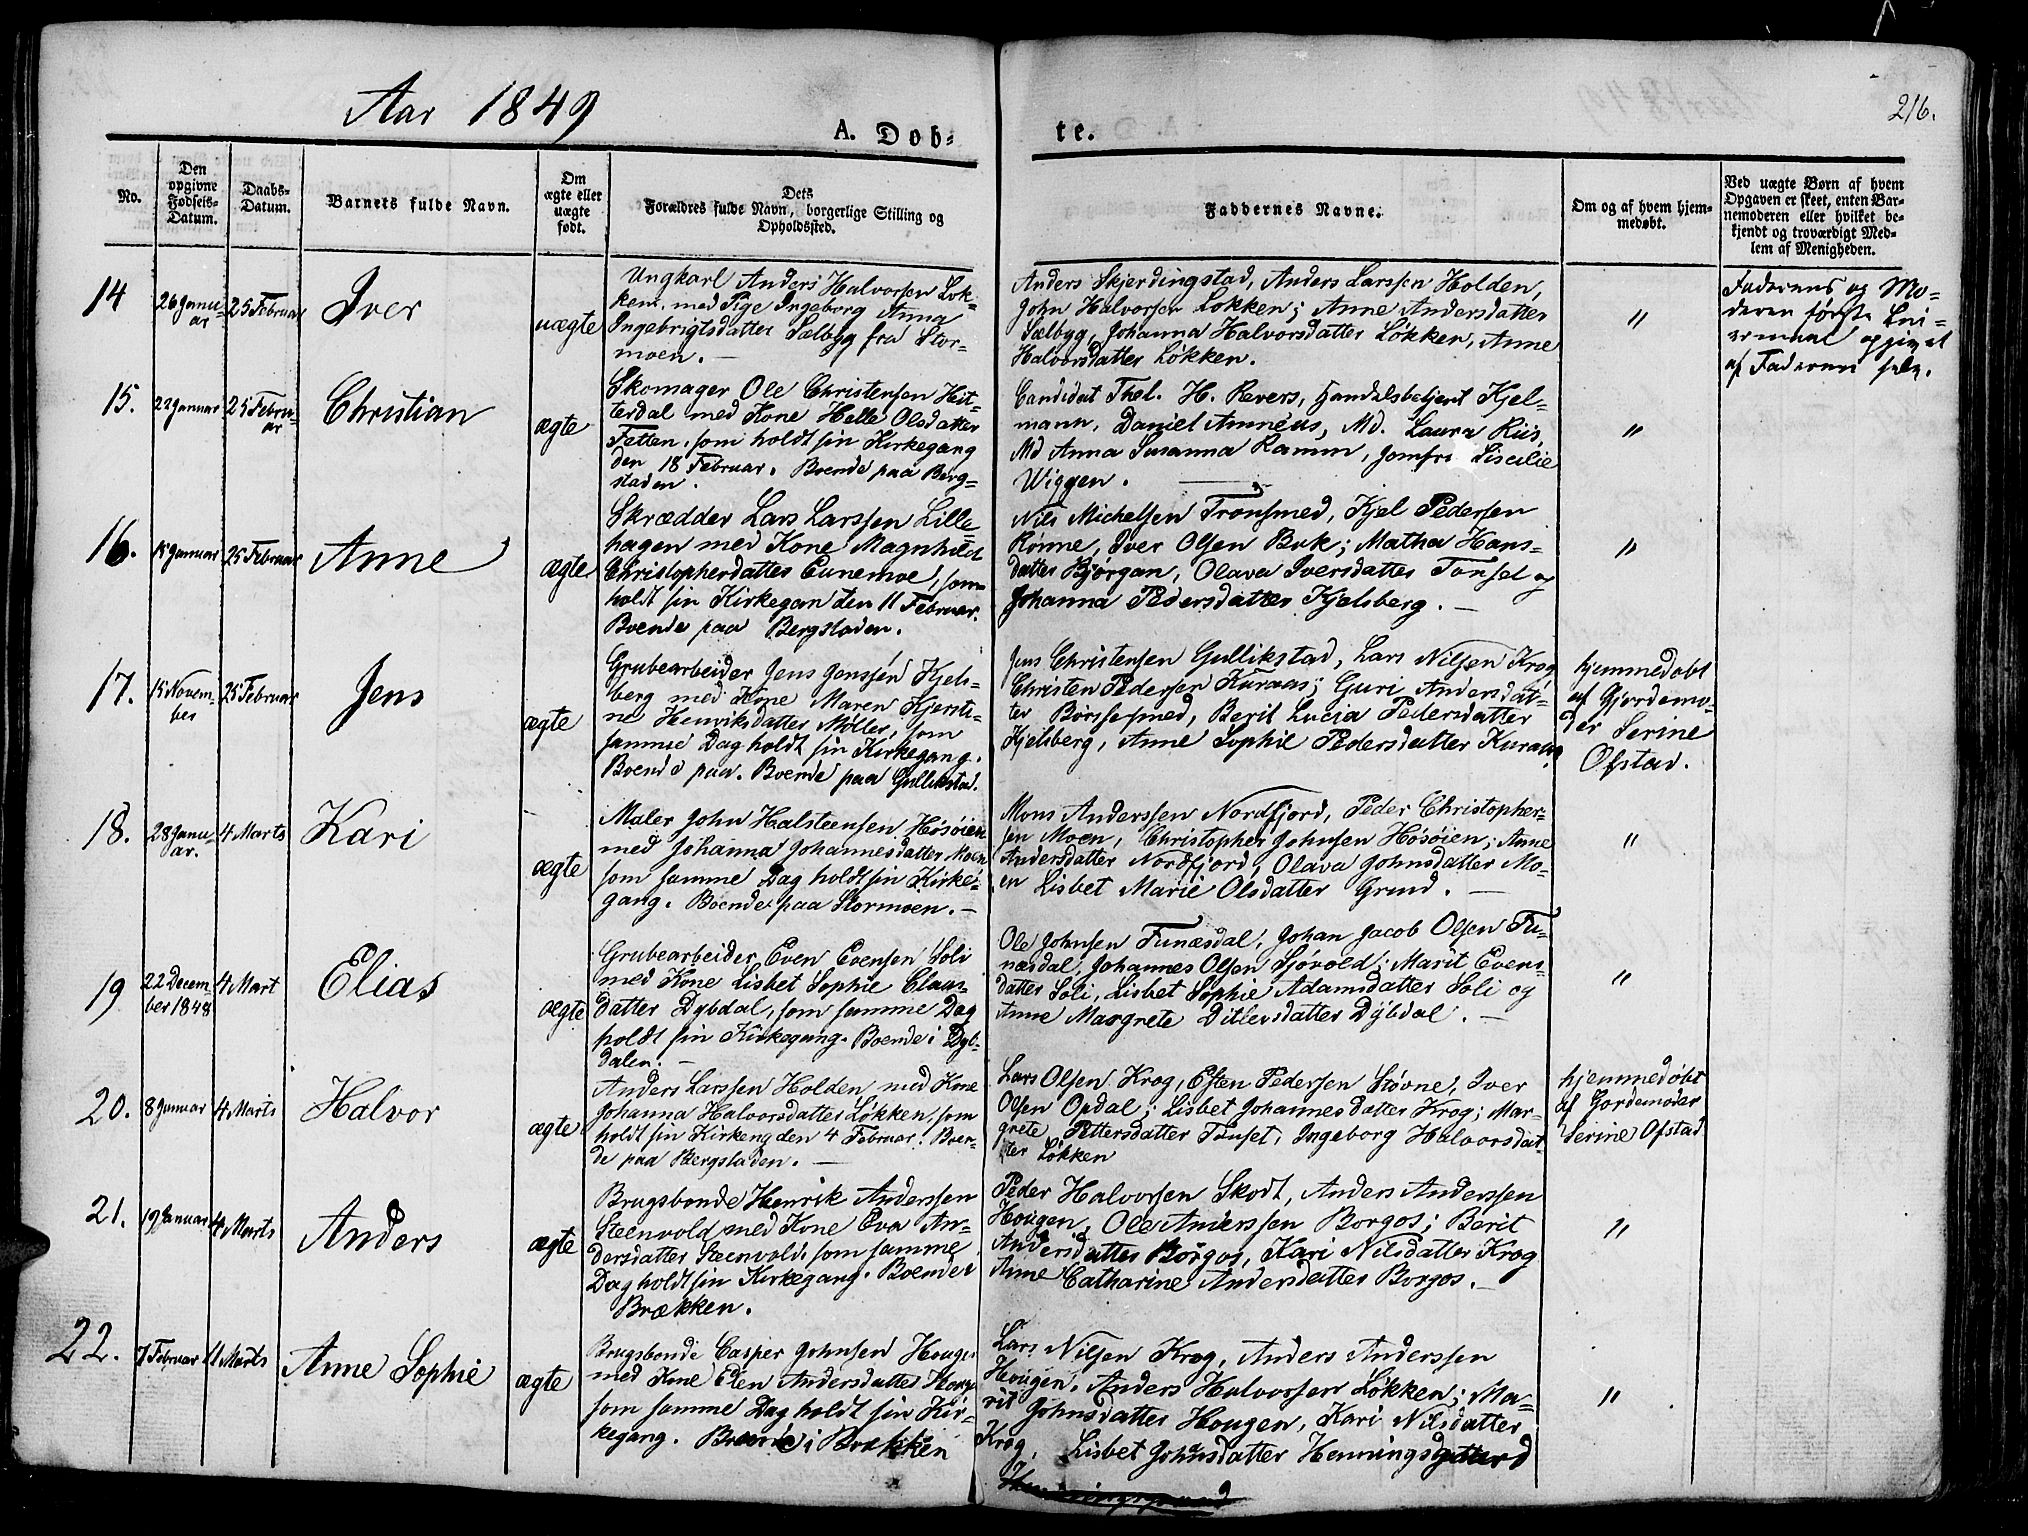 Aar 1849
216.
A. Døb-
te.
No.
Den
opgivne
Fødsels-
Datum.
Daabs-
Datum.
Barnets fulde Navn.
Om
ægte eller
uægte
født.
Dets
Forældres fulde Navn, borgerlige Stilling og
Opholdssted.
Faddernes Navne.
Om og af hvem hjem-
medøbt.
Ved uægte Børn af hvem
Opgaven er skeet, enten Bar-
nemoderen eller hvilket be-
kjendt og troværdigt Med-
lem af Menigheden.
14
26 Janu-
ar
25 Februar
Iver
uægte
Ungkarl Anders Halvorsen Løk-
ken med Pige Ingeborg Anna
Ingebrigtsdatter Sælbyg fra Stor-
moen. —
Anders Skjerdingstad, Anders Larssen Holden,
John Halvorsen Løkken; Anne Andersdatter
Sælbyg, Johanna Halvorsdatter Løkken, Anne
Halvorsdatter Løkken.
"
Faderens og Mo-
deren første Lei-
ermaal opgivet
af Faderen selv.
15.
22 Januar
25 Febru-
ar
Christian
ægte
Skomager Ole Christensen Heit-
terdal med Kone Helle Olsdatter
Tetten, som holdt sin Kirkegang
den 18 Februar. Boende paa Berg-
staden.
Candidat Thel. H. Revers, Handelsbetjent Kjel-
mann, Daniel Amnéus, Md. Laura Riis,
Md Anna Susanna Ramm, Jomfru Siscilie
Wiggen.
"
16.
18 Januar
25 Februar
Anne
ægte
Skrædder Lars Larssen Lille
hagen med Kone Magnhild
Christopherdatter Eunemoe, som
holdt sin Kirkegan den 11 Februar.
Boende paa Bergstaden.
Nils Michelsen Tronsmed, Kjel Pedersen
Rønne, Iver Olsen Buk; Matha Hans-
datter Bjørgan, Olava Iversdatter Tonset og
Johanna Pedersdatter Kjelsberg. —
"
17.
15 Novem-
ber
25 Februar
Jens
ægte
Grubearbeider Jens Jenssen Kjels-
berg med Kone Maren Kjersti-
ne Henriksdatter Møller, som
samme Dag holdt sin Kirkegang.
Boende paa. Boende paa Gullikstad.
Jens Christensen Gullikstad, Lars Nilsen Krog
Christen Pedersen Kuraas; Guri Andersdat-
ter Børssesmed, Berit Lucia Pedersdatter
Kjelsberg, Anne Sophie Pedersdatter Kuraas,
hjemmedøbt
af Gjordemo-
der Serine
Ofstad.
18.
28 Janu-
ar.
4 Marts
Kari
ægte
Maler John Halsteensen Høsøien
med Johanna Johannesdatter Moen
som samme Dag holdt sin Kirke-
gang. Boende paa Stormoen. —
Mons Anderssen Nordfjord, Peder Christopher-
sen Moen, Christopher Johnsen Høsøien; Anne
Andersdatter Nordfjord, Olava Johnsdatter Mo-
en Lisbet Marie Olsdatter Grind. —
"
19
22 Decem-
ber 1848
4 Mart
Elias
ægte
Grubearbeider Even Evensen Soli
med Kone Lisbet Sophie Claus-
datter Dybdal, som samme Dag
holdt sin Kirkegang. Boende i Dyb-
dalen. —
Ole Johnsen Funæsdal, Johan Jacob Olsen Fu-
næsdal, Johannes Olsen Sjøvold; Marit Evens-
datter Soli, Lisbet Sophie Adamsdatter Soli og
Anne Margrete Ditlevsdatter Dybdal. —
"
20.
8 Januar
4 Marts
Halvor
ægte
Anders Larssen Holden med Kone
Johanna Halvorsdatter Løkken, som
holdt sin Kirkeng den 4 Februar. Boen-
de paa Bergstaden. —
Lars Olsen Krog, Esten Pedersen Støvne, Iver
Olsen Opdal; Lisbet Johannesdatter Krog; Mar-
grete Pettersdatter Tønset, Ingeborg Halvorsdat
ter Løkken
hjemmedøbt
af Gordemoder
Serine Ofstad
21.
19 Januar
4 Marts
Anders
ægte
Brugsbonde Henrik Anderssen
Steenvold med Kone Eva An-
dersdatter Steenvold, som samme
Dag holdt sin Kirkegang. Boende i
Brækken.
Peder Halvorsen Skodt, Anders Anderssen
Hougen, Ole Anderssen Borgos; Berit
Andersdatter Borgos, Kari Nilsdatter Krog
Anne Catharine Andersdatter Borgos. —
"
22.
7 Februar
11 Marts
Anne Sophie
ægte
Brugsbonde Casper Johnsen Hougen
med Kone Elen Andersdatter Borgos
som samme Dag holdt sin Kir-
kegang. Boende i Brækken
Lars Nilsen Krog, Anders Anderssen
Hougen, Anders Halvorssen Løkken; Ma-
rit Johnsdatter Hougen, Kari Nilsdatter
Krog, Lisbet Johnsdatter Henningsgaard